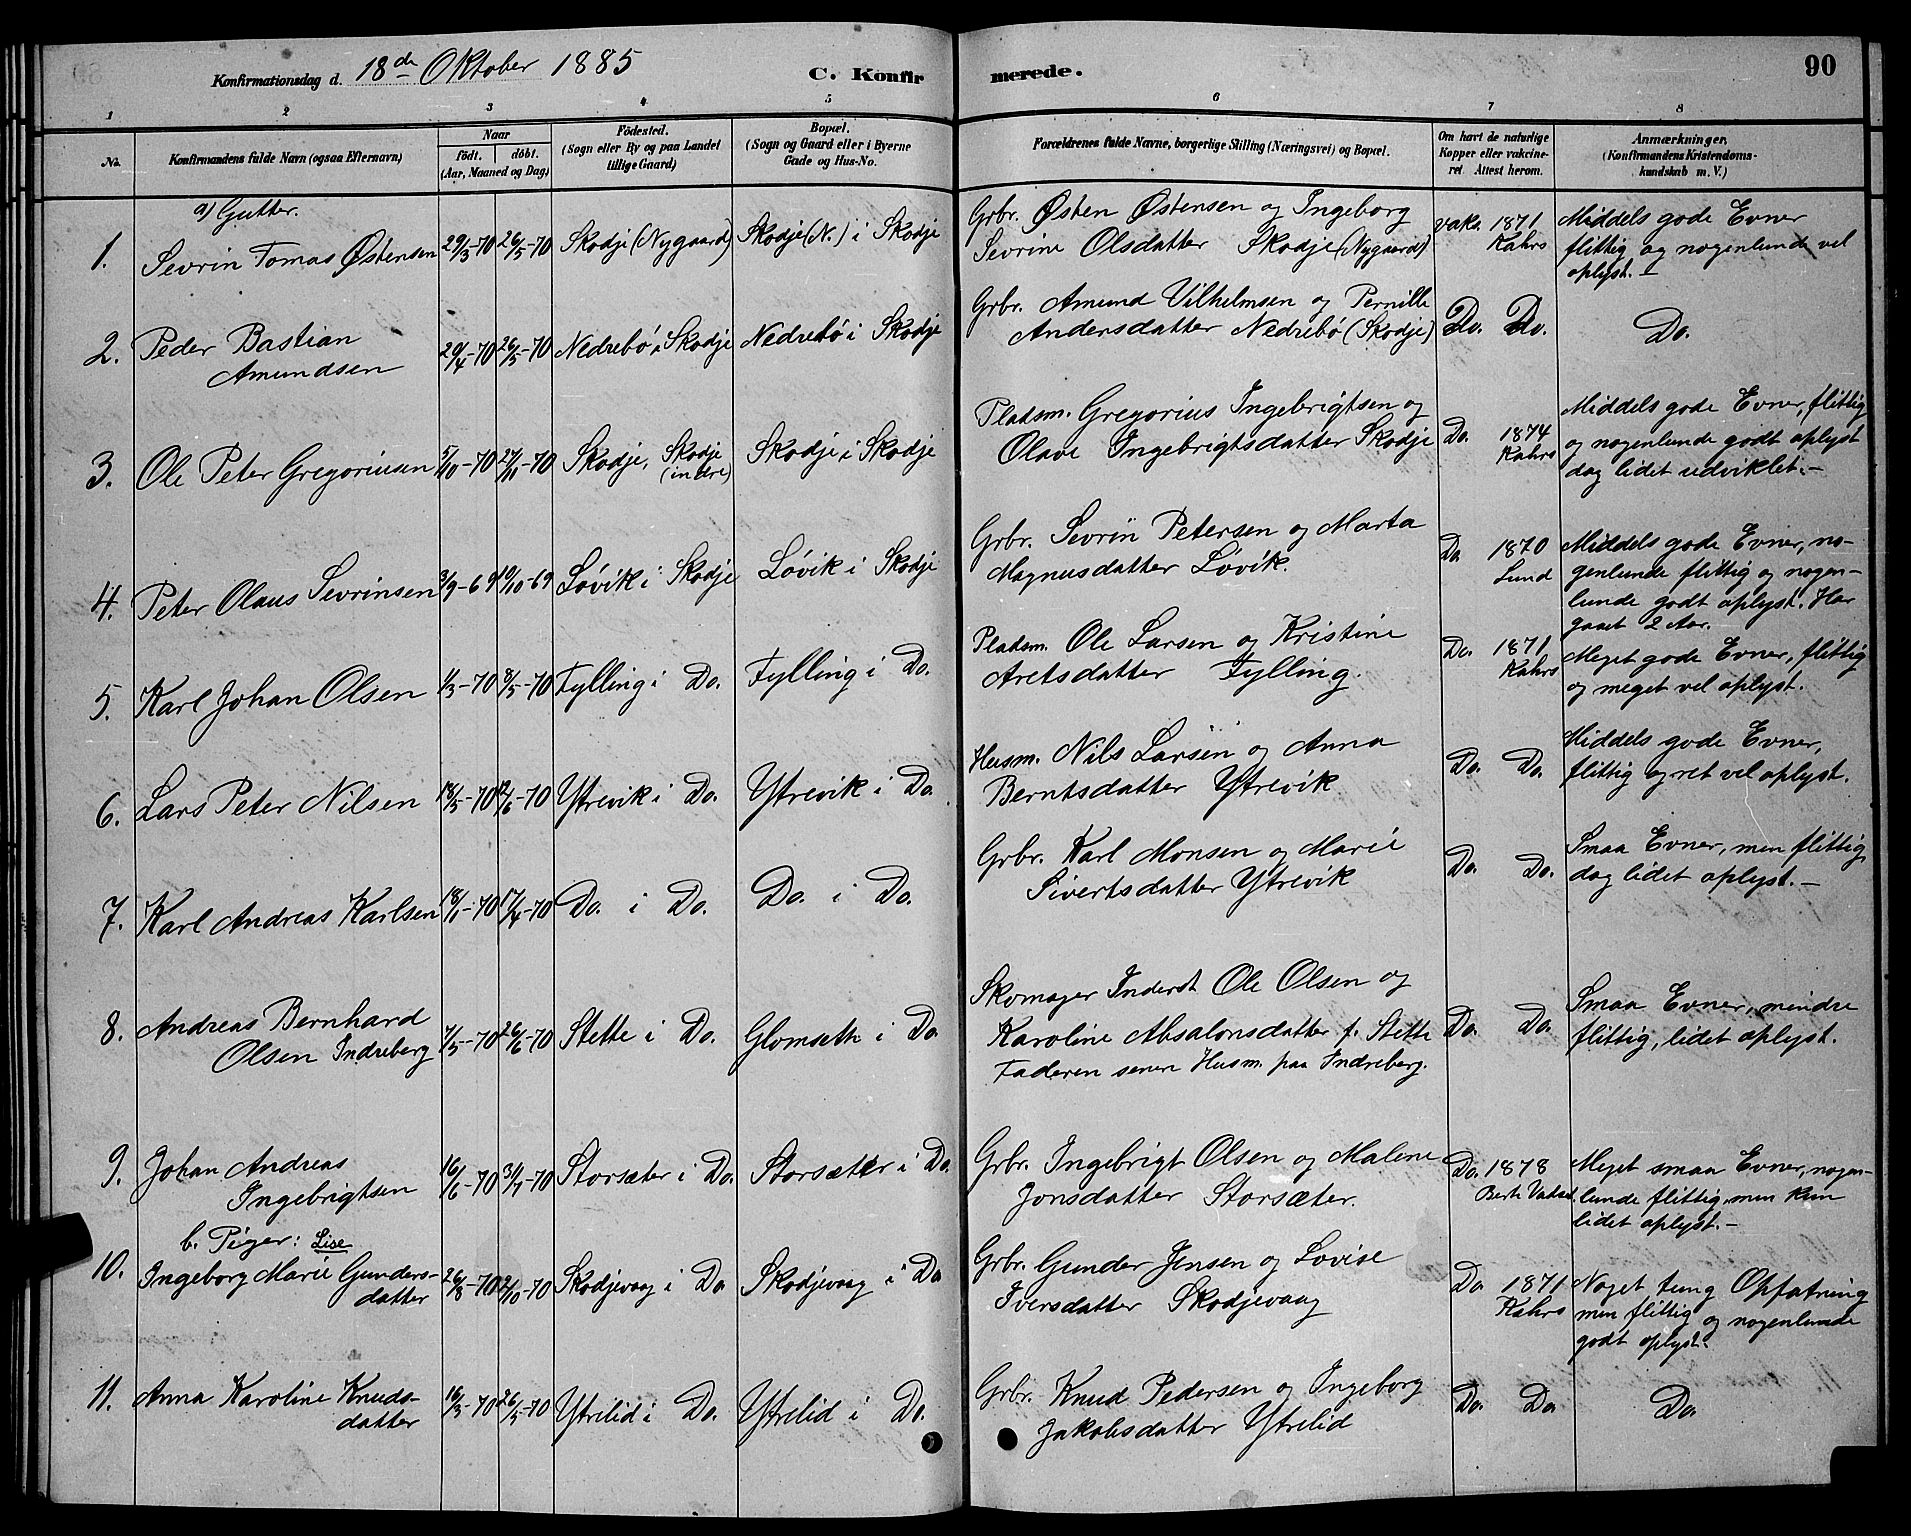 Konfirmationsdag d. 18de Oktober 1885
C. Konfirmerede.
90
1 2 3 4 5 6 7 8
No.
Konfirmandens fulde Navn (ogsaa Efternavn)
Naar
født. døbt.
(Aar, Maaned og Dag)
Födested.
(Sogn eller By og paa Landet
tillige Gaard)
Bopæl.
(Sogn og Gaard eller i Byerne
Gade og Hus-No.
Forældrenes fulde Navne, borgerlige Stilling (Næringsvei) og Bopæl.
Om havt de naturlige
Kopper eller vakcine-
ret Attest herom.
Anmærkninger,
(Konfirmandens Kristendoms-
kundskab m. V.)
a) Gutter.
1. Sevrin Tomas Østensen 29/3-70 26/5-70 Skodje (Nygaard) Skodje (N.) i Skodje
Grbr. Østen Østensen og Ingeborg
Sevrine Olsdatter Skodje (Nygaard)
vakc. 1871
Kahrs
Middels gode Evner
flittig og nogenlunde vel
oplyst.
2. Peder Bastian
Amundsen
29/4-70 26/5-70 Nedrebö i Skodje Nedrebö i Skodje
Grbr. Amund Vilhelmsen og Pernille
Andersdatter Nedrebö (Skodje)
Do. Do. Do.
3. Ole Peter Gregoriusen 5/10-70 27/11-70 Skodje, Skodje
(indre)
Skodje i Skodje
Pladsm. Gregorius Ingebrigtsen og
Olave Ingebrigtsdatter Skodje
Do. 1874
Kahrs
Middels gode Evner, flittig
og nogenlunde godt oplyst
dog lidet udviklet.-
4. Peter Olaus Sevrinsen 3/9-69 10/10-69 Lövik i Skodje Lövik i Skodje
Grbr. Sevrin Petersen og Marta
Magnusdatter Lövik.
Do 1870
Lund
Middels gode Evner, no-
genlunde flittig og nogen-
lunde godt oplyst. Har
gaaet 2 Aar.
5. Karl Johan Olsen 1/3-70 8/5-70 Fylling i Do. Fylling i Do.
Pladsm. Ole Larsen og Kristine
Aretsdatter Fylling.
Do. 1871
Kahrs
Meget gode Evner, flittig
og meget vel oplyst.
6. Lars Peter Nilsen 18/5-70 12/6-70 Ytrevik i Do. Ytrevik i Do.
Husm. Nils Larsen og Anna
Berntsdatter Ytrevik
Do. Do.
Middels gode Evner,
flittig og ret vel oplyst.
7. Karl Andreas Karlsen 18/1-70 17/4-70 Do. i Do. Do. i Do.
Grbr. Karl Monsen og Marie
Sivertsdatter Ytrevik
Do. Do.
Smaa Evner, men flittig
dog lidet oplyst.-
8. Andreas Bernhard
Olsen Indreberg
7/5-70 26/6-70 Stette i Do. Glomseth i Do.
Skomager Inderst Ole Olsen og
Karoline Absalonsdatter f. Stette
Faderen senere Husm. paa Indreberg.
Do. Do.
Smaa Evner, mindre
flittig, lidet oplyst.
9. Johan Andreas
Ingebrigtsen
16/6-70 3/7-70 Storsæter i Do. Storsæter i Do.
Grbr. Ingebrigt Olsen og Malene
Jonsdatter Storsæter.
Do. 1878
Meget smaa Evner, nogen-
lunde flittig, men kun
lidet oplyst.-
b. Piger: Lise
10. Ingeborg Marie Gunders-
datter
26/8-70 2/10-70 Skodjevaag i Do Skodjevaag i Do
Grbr. Gunder Jensen og Lovise
Iversdatter Skodjevaag
Do 1871
Kahrs
Noget tung Opfatning
men flittig og nogenlunde
godt oplyst.
11. Anna Karoline Knuds-
datter
16/3-70 26/5-70 Ytrelid i Do. Ytrelid i Do.
Grbr. Knud Pedersen og Ingeborg
Jakobsdatter Ytrelid
Do. Do. Do.